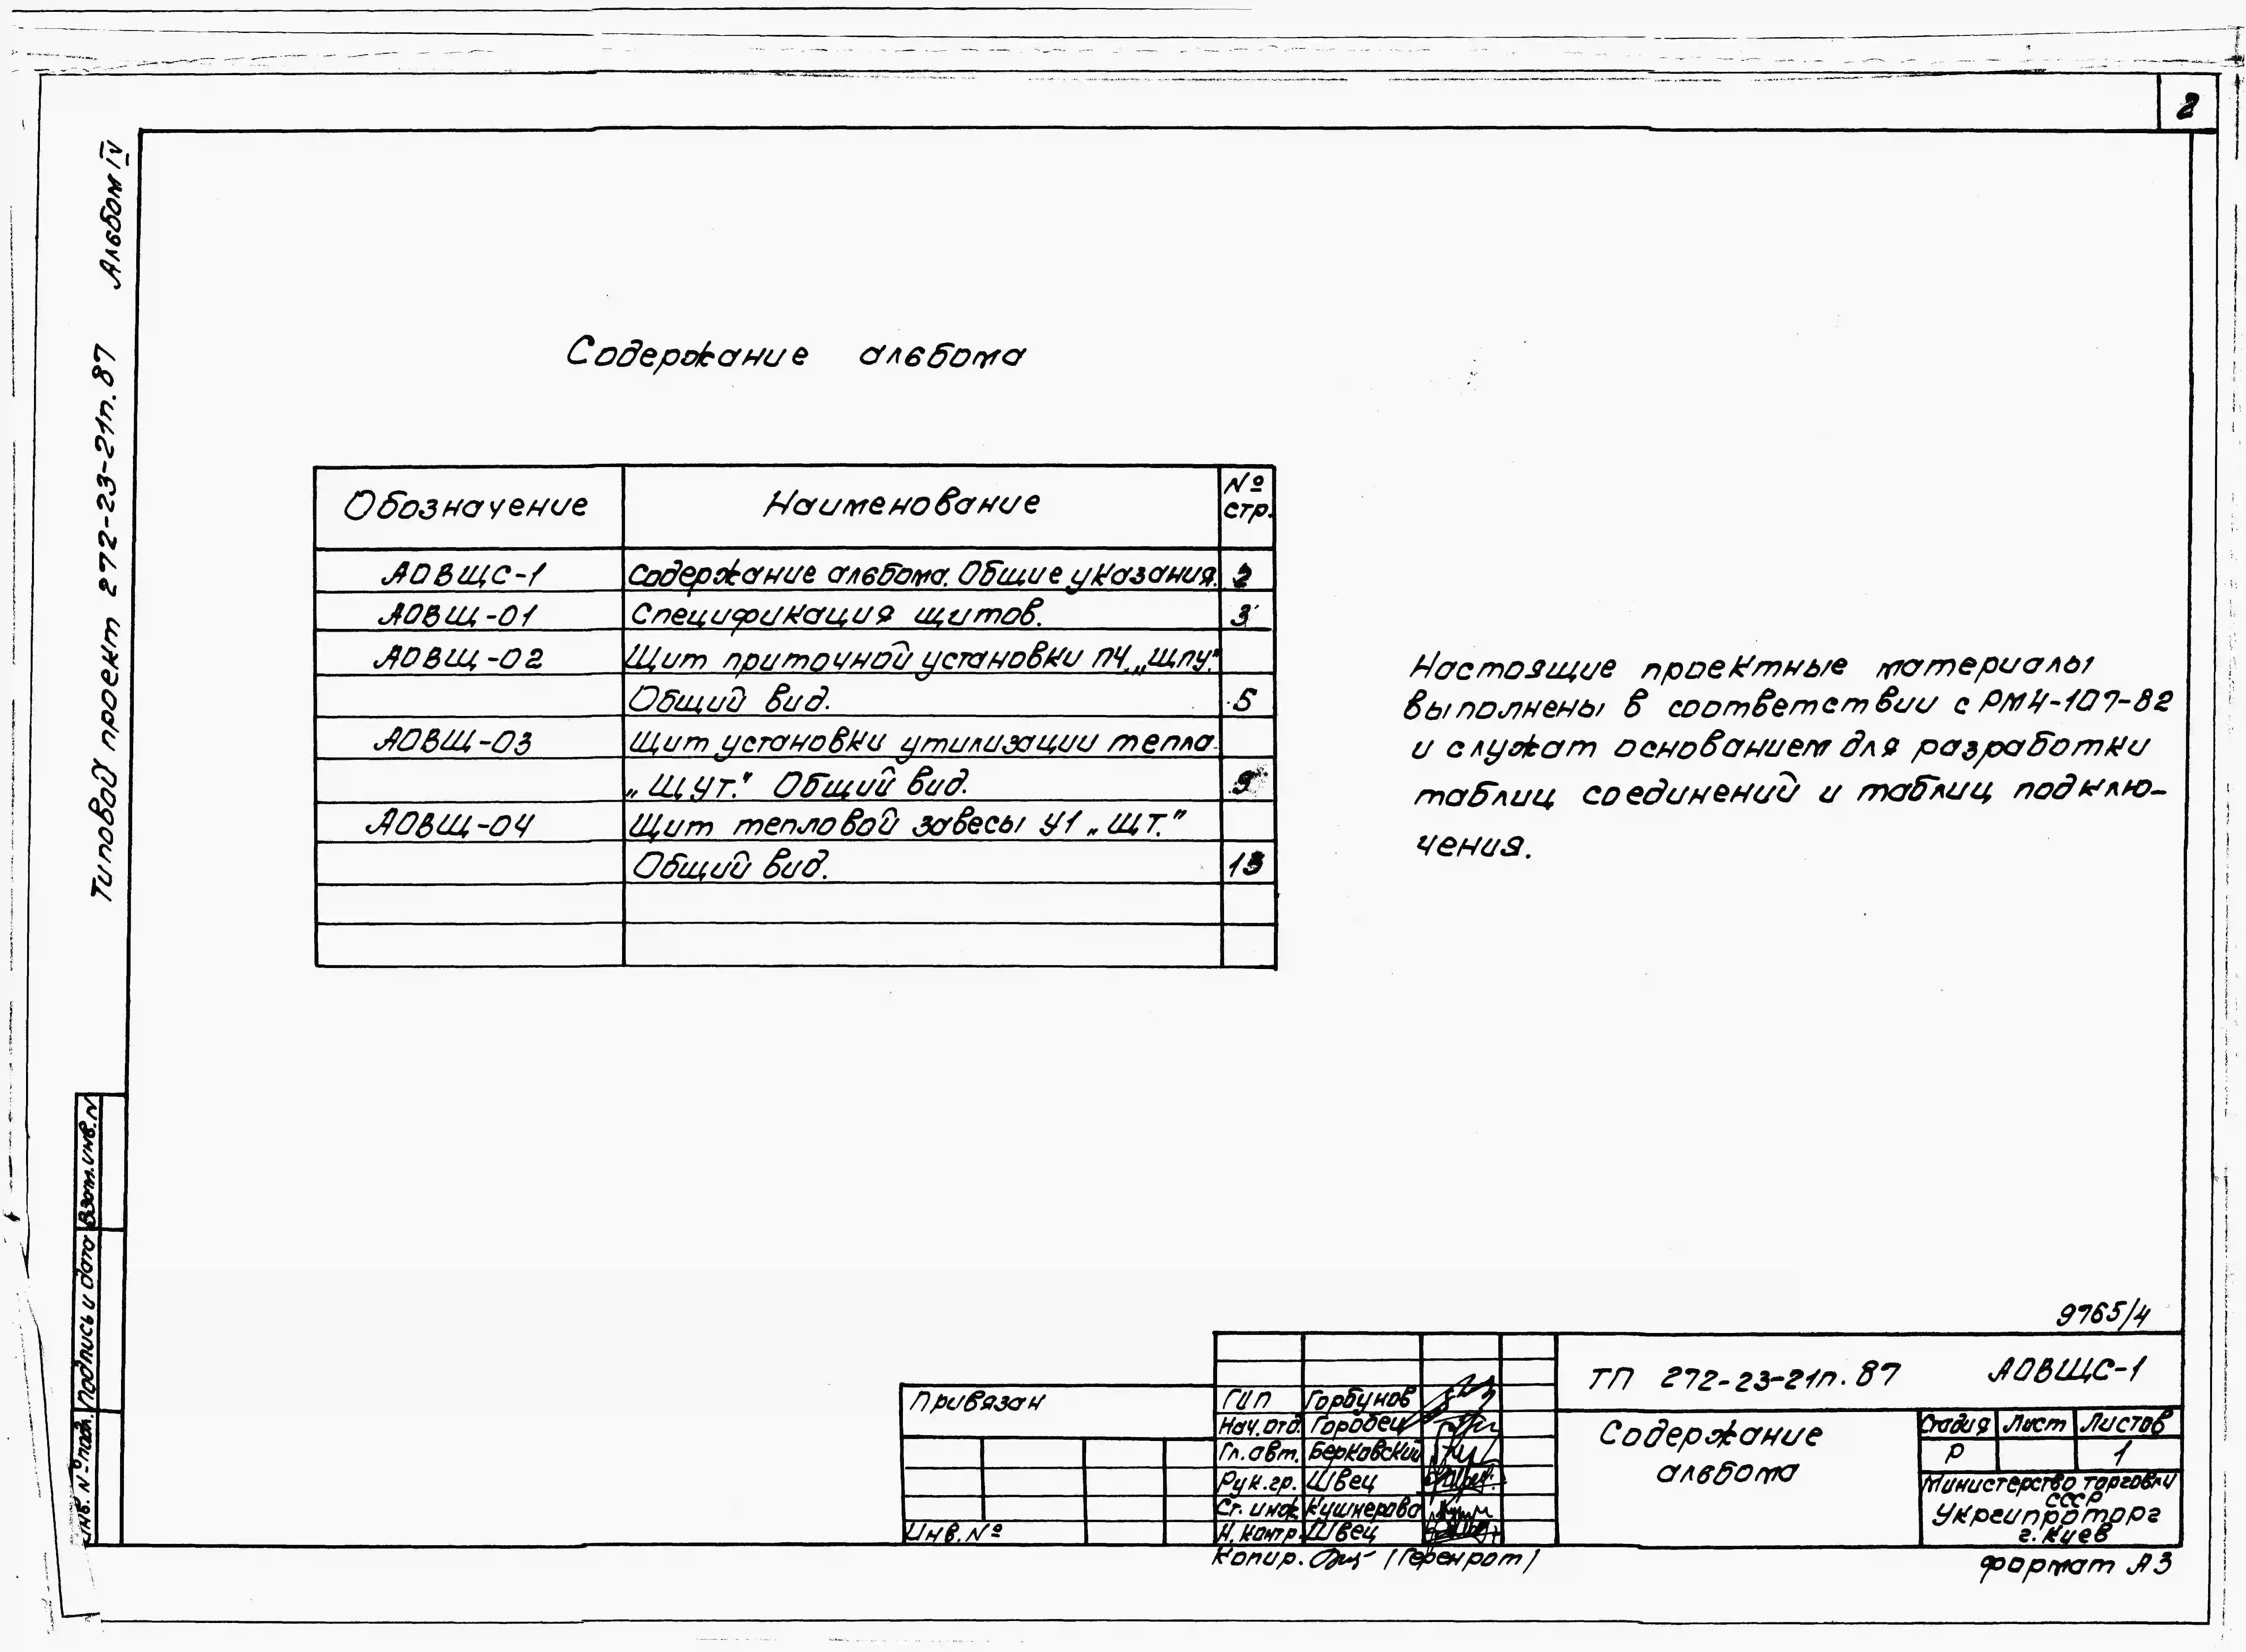 2
Альбом IV
Типовой проект 272-23-21п.87
Содержание альбома
Обозначение Наименование № стр.
АОВЩС-1 Содержание альбома. Общие указания. 2
АОВЩ-01 Спецификация щитов. 3
АОВЩ-02 Щит приточной установки П4 „ЩПУ."
Общий вид. 5
АОВЩ-03 Щит установки утилизации тепла
„ЩУТ." Общий вид. 9
АОВЩ-04 Щит тепловой завесы У1 „ЩТ."
Общий вид. 13
Настоящие проектные материалы
выполнены в соответствии с РМ4-107-82
и служат основанием для разработки
таблиц соединений и таблиц подклю-
чения.
Взам.инв.N
Подпись и дата
Инв. №подл.
9765/4
ТП 272-23-21п.87 АОВЩС-1
Привязан
Инв.№
ГИП Горбунов
Нач.отд. Горобец
Гл.авт. Берковский
Рук.гр. Швец
Ст. инж. Кушнерова
Н.контр. Швец
Содержание
альбома
Стадия Лист Листов
Р 1
Министерство торговли
СССР
Укргипроторг
г.Киев
Копир. (Геренрот)
формат А3